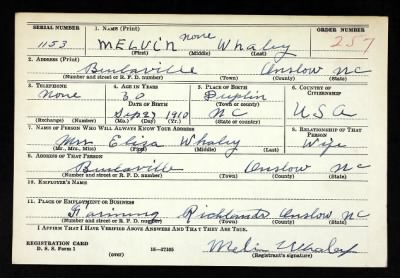 SERIAL NUMBER 1. NAME (Print) ORDER NUMBER
1153 MELVIN none Whaley 257
(First) (Middle) (Last)
2. ADDRESS (Print)
Beulaville Onslow NC
(Number and street or R. F. D. number) (Town) (County) (State)
3. TELEPHONE 4. AGE IN YEARS 5. PLACE OF BIRTH 6. COUNTRY OF CITIZENSHIP
None 30 Duplin
DATE OF BIRTH (Town or county)
Sep 27 1910 NC USA
(Exchange) (Number) (Mo.) (Day) (Yr.) (State or country)
7. NAME OF PERSON WHO WILL ALWAYS KNOW YOUR ADDRESS 8. RELATIONSHIP OF THAT PERSON
Mrs Eliza Whaley Wife
(Mr., Mrs., Miss) (First) (Middle) (Last)
9. ADDRESS OF THAT PERSON
Beulaville Onslow NC
(Number and street or R. F. D. number) (Town) (County) (State)
10. EMPLOYER'S NAME
11. PLACE OF EMPLOYMENT OR BUSINESS
Farming Richlands Onslow NC
(Number and street or R. F. D. number) (Town) (County) (State)
I AFFIRM THAT I HAVE VERIFIED ABOVE ANSWERS AND THAT THEY ARE TRUE.
REGISTRATION CARD
D. S. S. Form 1 16-17105 Melvin Whaley
(over) (Registrant's signature)